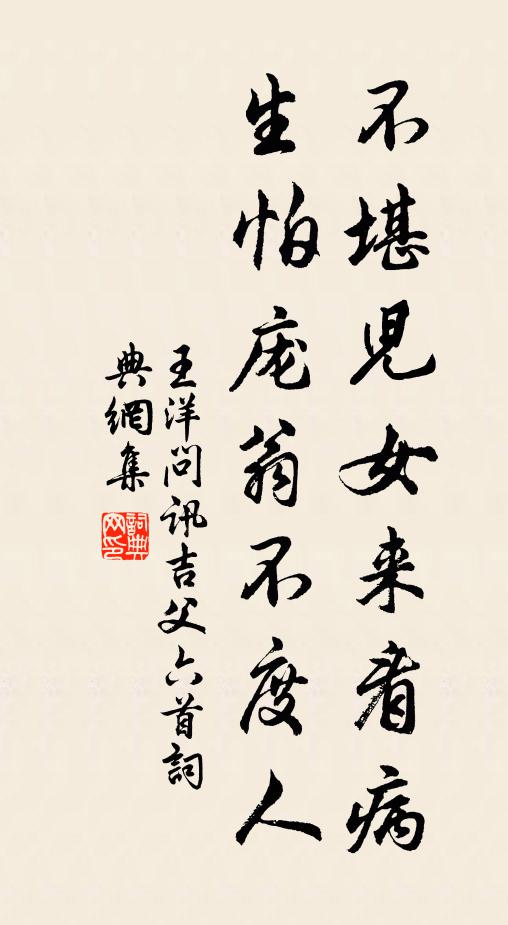 不堪児女来看病
生怕庞翁不度人
王洋問訊吉父六首詞
典網集
詞典
网印